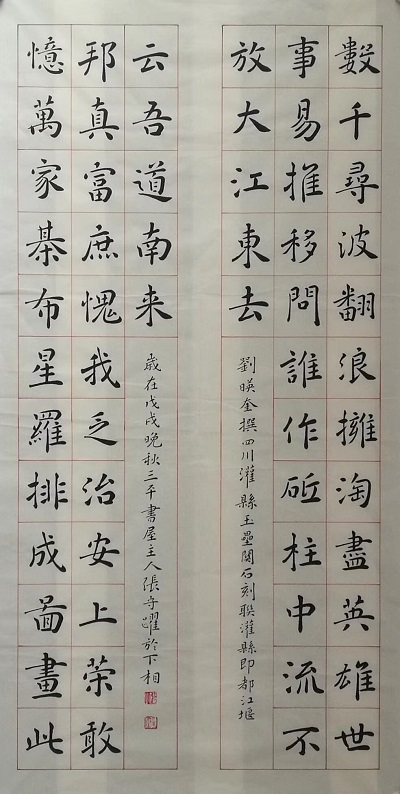 數千尋波翻浪擁淘盡英雄世
事易推移問誰作砥柱中流不
放大江東去
劉暎奎撰四川灌縣玉壘關石刻聯灌縣即都江堰
憶萬家棊布星羅排成圖畫此
邦真富庶愧我乏治安上策敢
云吾道南来
歲在戊戌晚秋三平書屋主人張守躍於下相